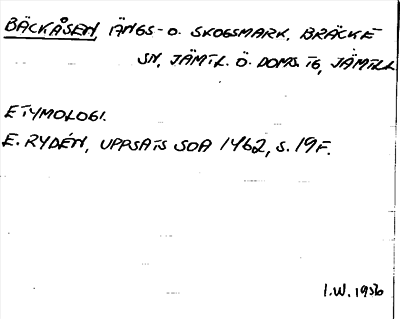 BÄCKÅSEN, ÄNGS- O. SKOGSMARK, BRÄCKE
SN, JÄMTL. Ö. DOMS. TG, JÄMTLL
ETYMOLOGI.
E. RYDÉN, UPPSATS SOA 1462, S. 19F.
I.W. 1936